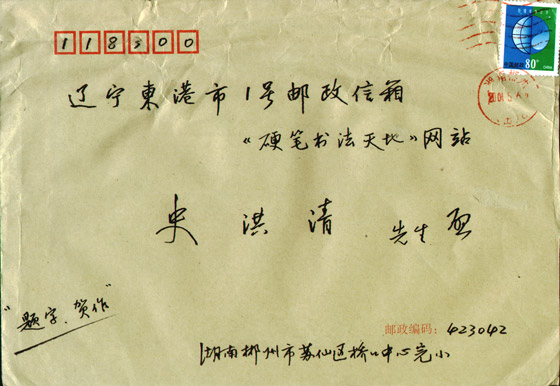 118300
80分
辽宁東港市1号邮政信箱
《硬笔书法天地》网站
史洪清 先生
"题字、贺作"
邮政编码: 423042
湖南郴州市苏仙区桥口中心完小